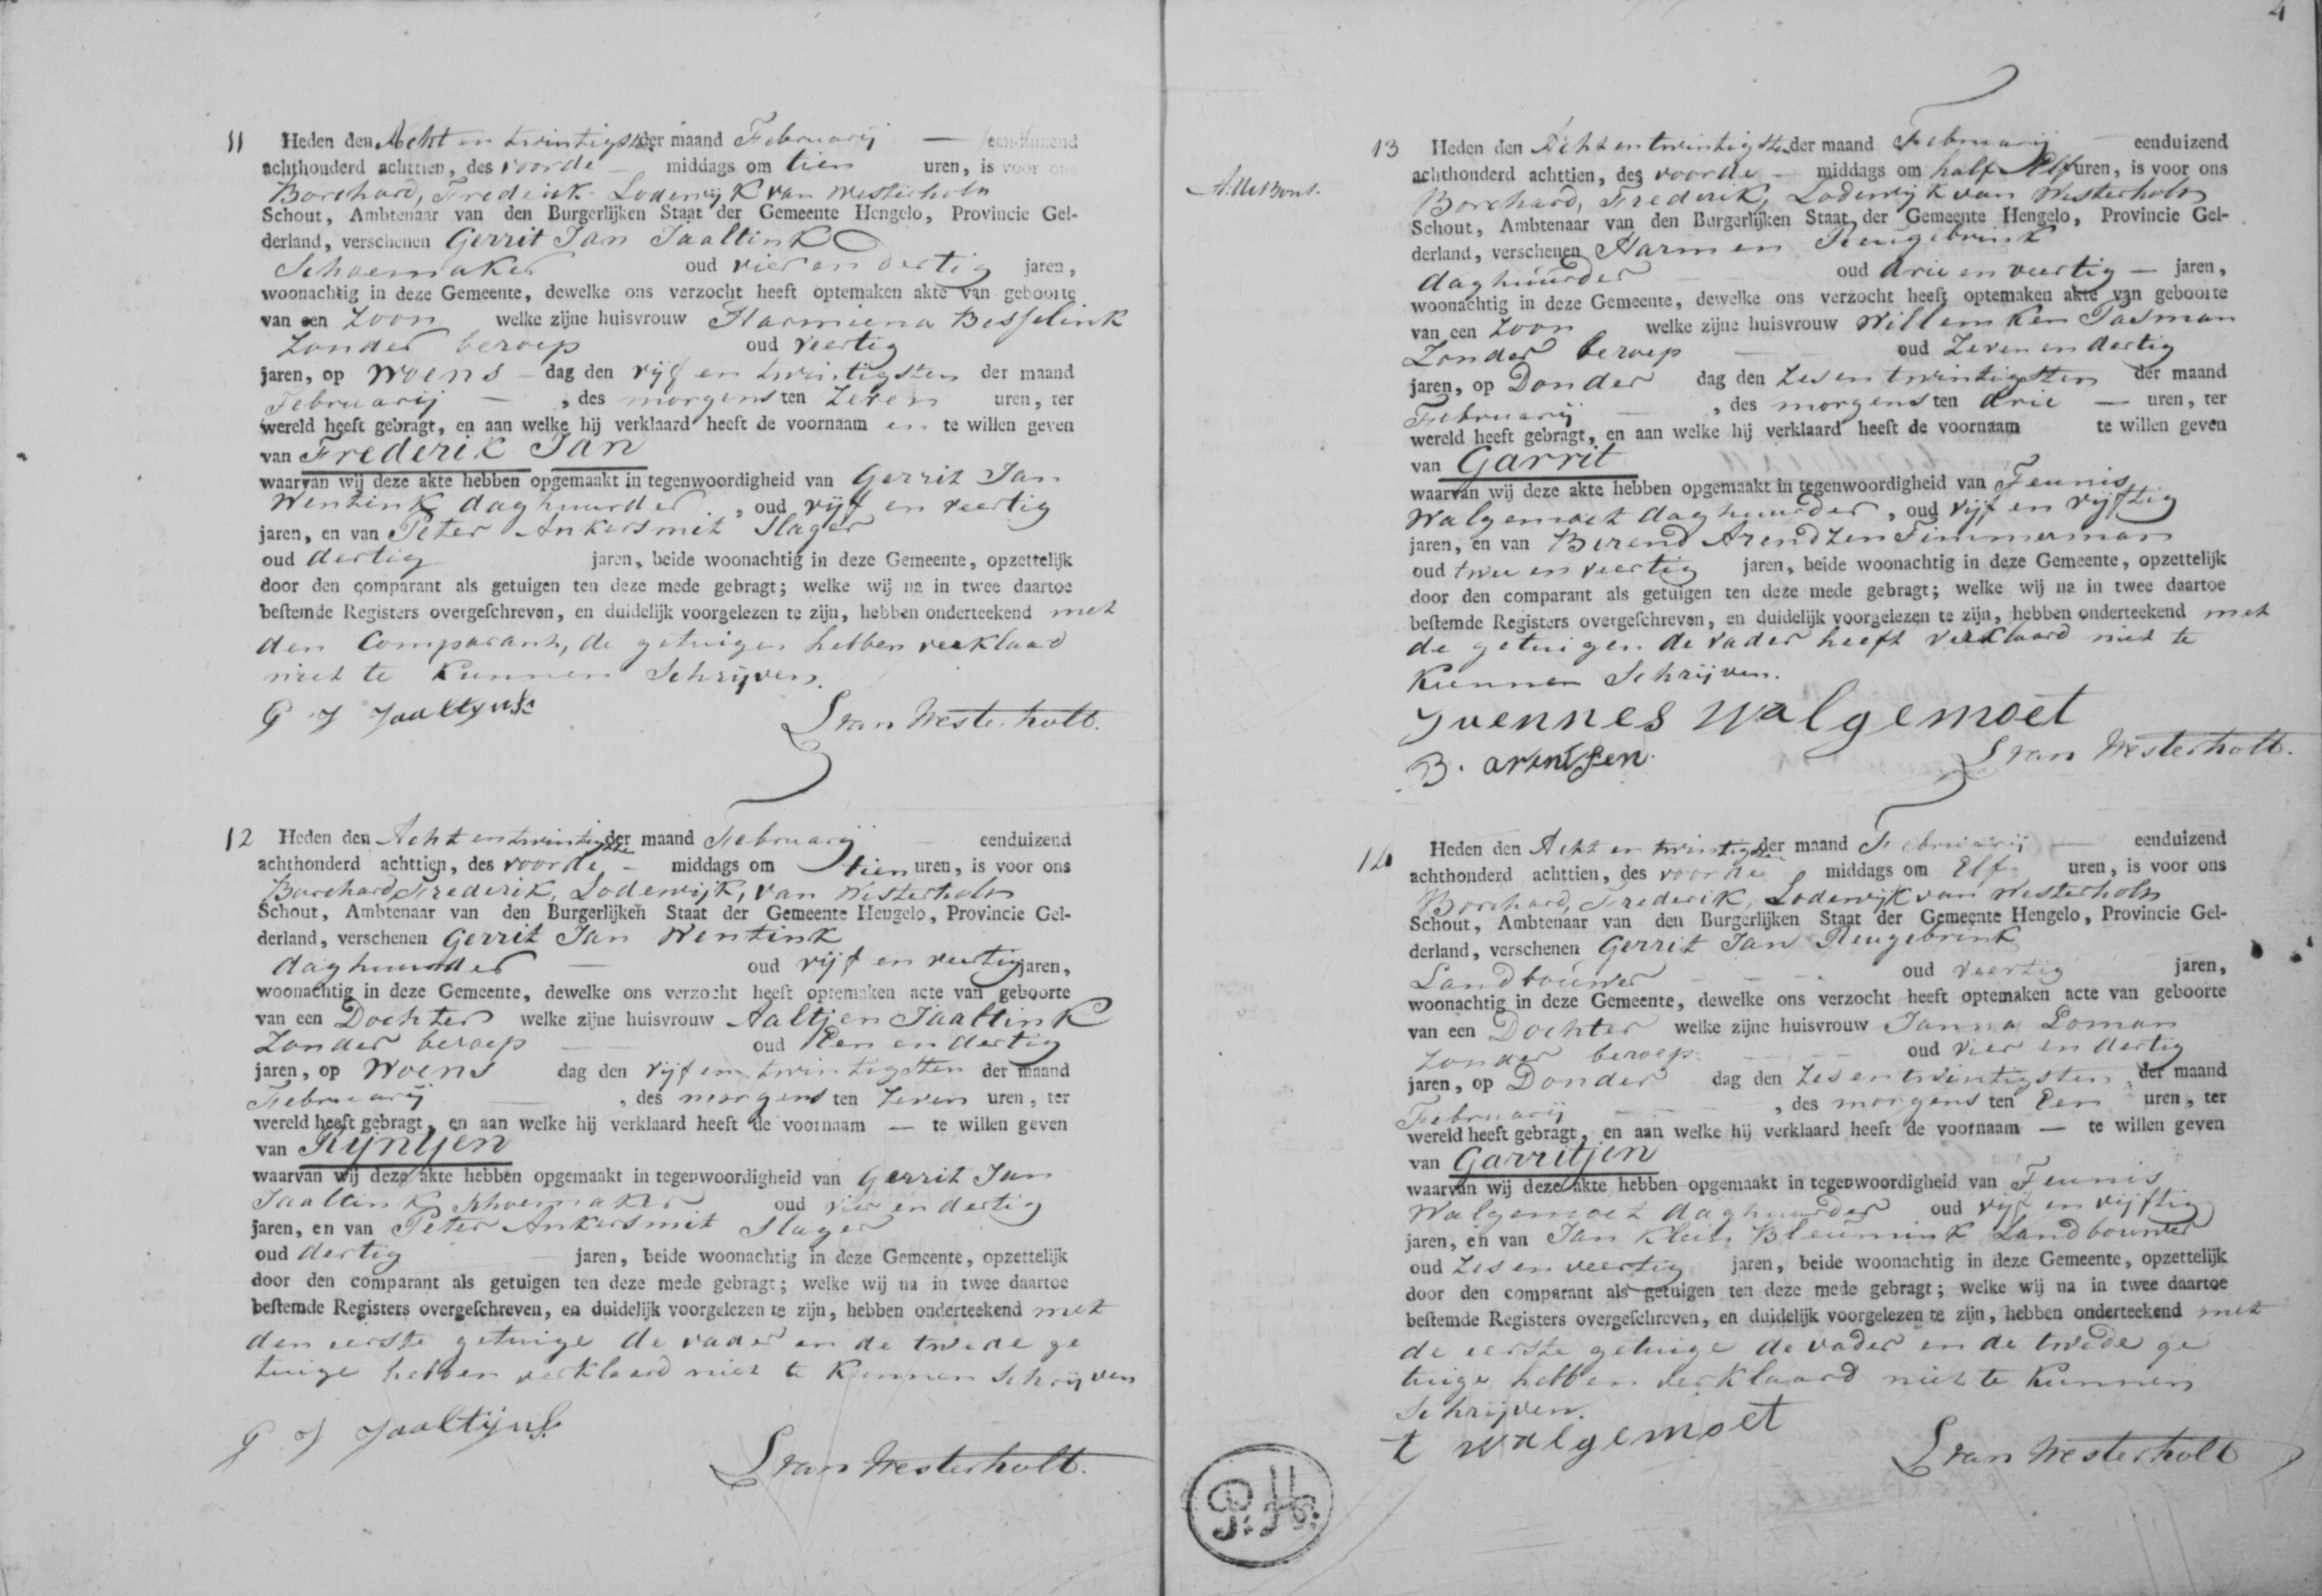 11 Heden den Acht en twintigsten der maand Februarij — eenduizend
achthonderd achttien, des voorde — middags om tien uren, is voor ons
Borchard, Frederik Lodewijk van Westerholt
Schout, Ambtenaar van den Burgerlijken Staat der Gemeente Hengelo, Provincie Gel-
derland, verschenen Gerrit Jan Jaaltink
Schoemaker oud vier en dertig jaren,
woonachtig in deze Gemeente, dewelke ons verzocht heeft optemaken akte van geboorte
van een zoon welke zijne huisvrouw Harmiena Besselink
Zonder beroep oud veertig
jaren, op Woens — dag den vijf en twintigsten der maand
Februarij — , des morgens ten zeven uren, ter
wereld heeft gebragt, en aan welke hij verklaard heeft de voornaam en te willen geven
van Frederik Jan
waarvan wij deze akte hebben opgemaakt in tegenwoordigheid van Gerrit Jan
Wentink daghuurder , oud vijf en veertig
jaren, en van Peter Ankersmit Slager
oud dertig jaren, beide woonachtig in deze Gemeente, opzettelijk
door den comparant als getuigen ten deze mede gebragt; welke wij na in twee daartoe
bestemde Registers overgeschreven, en duidelijk voorgelezen te zijn, hebben onderteekend met
den Comparant, de getuigen hebben verklaard
niet te Kunnen Schrijven.
G J Jaaltynk
L van Westerholt.
12 Heden den Acht en twintigsten der maand Februarij eenduizend
achthonderd achttien, des voorde — middags om tien uren, is voor ons
Borchard Frederik, Lodewijk, van Westerholt
Schout, Ambtenaar van den Burgerlijken Staat der Gemeente Hengelo, Provincie Gel-
derland, verschenen Gerrit Jan Wentink
daghuurder — oud vijf en veertig jaren,
woonachtig in deze Gemeente, dewelke ons verzocht heeft optemaken acte van geboorte
van een Dochter welke zijne huisvrouw Aaltjen Jaaltink
Zonder beroep — oud Een en dertig
jaren, op Woens dag den vijf en twintigsten der maand
Februarij — , des morgens ten zeven uren, ter
wereld heeft gebragt, en aan welke hij verklaard heeft de voornaam — te willen geven
van Ryntjen
waarvan wij deze akte hebben opgemaakt in tegenwoordigheid van Gerrit Jan
Jaaltink schoemaker oud vier en dertig
jaren, en van Peter Ankersmit Slager
oud dertig jaren, beide woonachtig in deze Gemeente, opzettelijk
door den comparant als getuigen ten deze mede gebragt; welke wij na in twee daartoe
bestemde Registers overgeschreven, en duidelijk voorgelezen te zijn, hebben onderteekend met
den eerste getuige de vader en de twede ge
tuige hebben verklaard niet te Kunnen Schrijven
G J Jaaltijnk
L van Westerholt.
4
13 Heden den Acht en twintigsten der maand Februarij eenduizend
achthonderd achttien, des voorde — middags om half Elf uren, is voor ons
Borchard, Frederik, Lodewijk van Westerholt
Schout, Ambtenaar van den Burgerlijken Staat der Gemeente Hengelo, Provincie Gel-
derland, verschenen Harmen Reugebrink
daghuurder oud drie en veertig — jaren,
woonachtig in deze Gemeente, dewelke ons verzocht heeft optemaken akte van geboorte
van een zoon welke zijne huisvrouw Willemken Tasman
Zonder beroep — oud Zeven en dertig
jaren, op Donder dag den zes en twintigsten der maand
Februarij — , des morgens ten drie — uren, ter
wereld heeft gebragt, en aan welke hij verklaard heeft de voornaam te willen geven
van Garrit
waarvan wij deze akte hebben opgemaakt in tegenwoordigheid van Teunis
Walgemoet daghuurder , oud vijf en vijftig
jaren, en van Berend Arendzen Timmerman
oud twee en veertig jaren, beide woonachtig in deze Gemeente, opzettelijk
door den comparant als getuigen ten deze mede gebragt; welke wij na in twee daartoe
bestemde Registers overgeschreven, en duidelijk voorgelezen te zijn, hebben onderteekend met
de getuigen de vader heeft verklaard niet te
Kunnen Schrijven.
walgemoet
L van Westerholt.
14 Heden den Acht en twintigsten der maand Februarij — eenduizend
achthonderd achttien, des voorde middags om Elf uren, is voor ons
Borchard, Frederik, Lodewijk van Westerholt
Schout, Ambtenaar van den Burgerlijken Staat der Gemeente Hengelo, Provincie Gel-
derland, verschenen Gerrit Jan Reugebrink
Landbouwer — oud veertig jaren,
woonachtig in deze Gemeente, dewelke ons verzocht heeft optemaken acte van geboorte
van een Dochter welke zijne huisvrouw Janna Loman
zonder beroep — oud vier en dertig
jaren, op Donder dag den zes en twintigsten der maand
Februarij — , des morgens ten Een uren, ter
wereld heeft gebragt, en aan welke hij verklaard heeft de voornaam — te willen geven
van Garritjen
waarvan wij deze akte hebben opgemaakt in tegenwoordigheid van Teunis
Walgemoet daghuurder oud vijf en vijftig
jaren, en van Jan Klein Bleumink Landbouwer
oud zes en veertig jaren, beide woonachtig in deze Gemeente, opzettelijk
door den comparant als getuigen ten deze mede gebragt; welke wij na in twee daartoe
bestemde Registers overgeschreven, en duidelijk voorgelezen te zijn, hebben onderteekend met
de eerste getuige de vader en de twede ge
tuige hebben verklaard niet te kunnen
Schrijven.
t walgemoet
L van Westerholt
P.H.